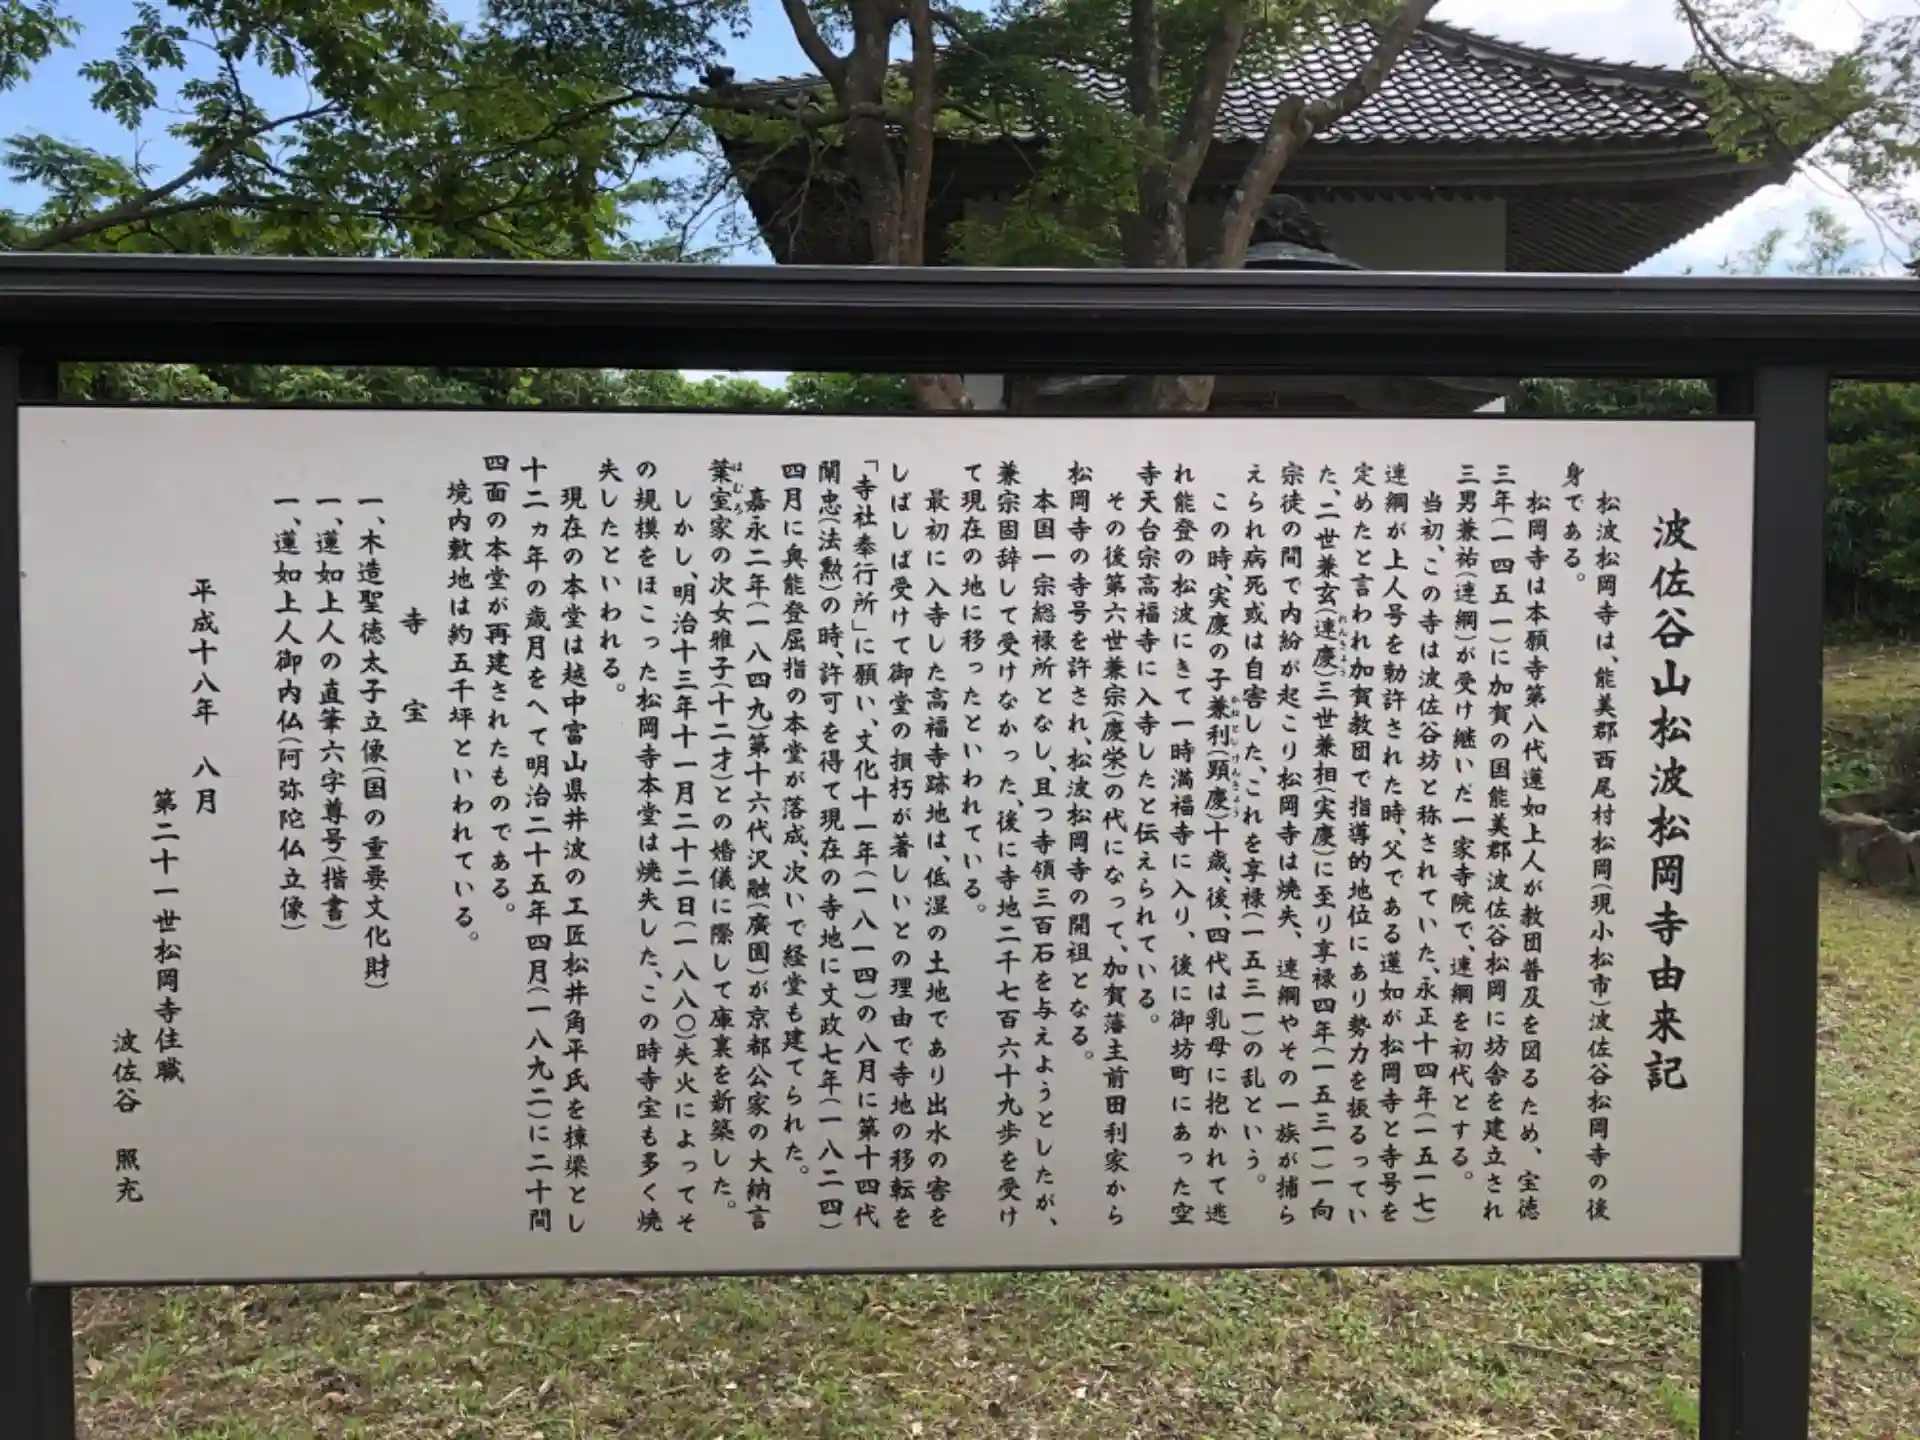 波佐谷山松波松岡寺由来記
松波松岡寺は、能美郡西尾村松岡(現小松市)波佐谷松岡寺の後
身である。
松岡寺は本願寺第八代蓮如上人が教団普及を図るため、宝徳
三年(一四五一)に加賀の国能美郡波佐谷松岡に坊舎を建立され
三男兼祐(連綱)が受け継いだ一家寺院で、連綱を初代とする。
当初、この寺は波佐谷坊と称されていた、永正十四年(一五一七)
連綱が上人号を勅許された時、父である蓮如が松岡寺と寺号を
定めたと言われ加賀教団で指導的地位にあり勢力を振るってい
た、二世兼玄(連慶)三世兼相(実慶)に至り享禄四年(一五三一)一向
宗徒の間で内紛が起こり松岡寺は焼失、連綱やその一族が捕ら
えられ病死或は自害した、これを享禄(一五三一)の乱という。
この時、実慶の子兼利(顕慶)十歳、後、四代は乳母に抱かれて逃
れ能登の松波にきて一時満福寺に入り、後に御坊町にあった空
寺天台宗高福寺に入寺したと伝えられている。
その後第六世兼宗(慶栄)の代になって、加賀藩主前田利家から
松岡寺の寺号を許され、松波松岡寺の開祖となる。
本国一宗総禄所となし、且つ寺領三百石を与えようとしたが、
兼宗固辞して受けなかった、後に寺地二千七百六十九歩を受け
て現在の地に移ったといわれている。
最初に入寺した高福寺跡地は、低湿の土地であり出水の害を
しばしば受けて御堂の損朽が著しいとの理由で寺地の移転を
「寺社奉行所」に願い、文化十一年(一八一四)の八月に第十四代
闡忠(法勲)の時、許可を得て現在の寺地に文政七年(一八二四)
四月に奥能登屈指の本堂が落成、次いで経堂も建てられた。
嘉永二年(一八四九)第十六代沢融(廣園)が京都公家の大納言
葉室家の次女雅子(十二才)との婚儀に際して庫裏を新築した。
しかし、明治十三年十一月二十二日(一八八〇)失火によってそ
の規模をほこった松岡寺本堂は焼失した、この時寺宝も多く焼
失したといわれる。
現在の本堂は越中富山県井波の工匠松井角平氏を棟梁とし
十二ヵ年の歳月をへて明治二十五年四月(一八九二)に二十間
四面の本堂が再建されたものである。
境内敷地は約五千坪といわれている。
寺 宝
一、木造聖徳太子立像(国の重要文化財)
一、蓮如上人の直筆六字尊号(楷書)
一、蓮如上人御内仏(阿弥陀仏立像)
平成十八年 八月
第二十一世松岡寺住職
波佐谷 照充